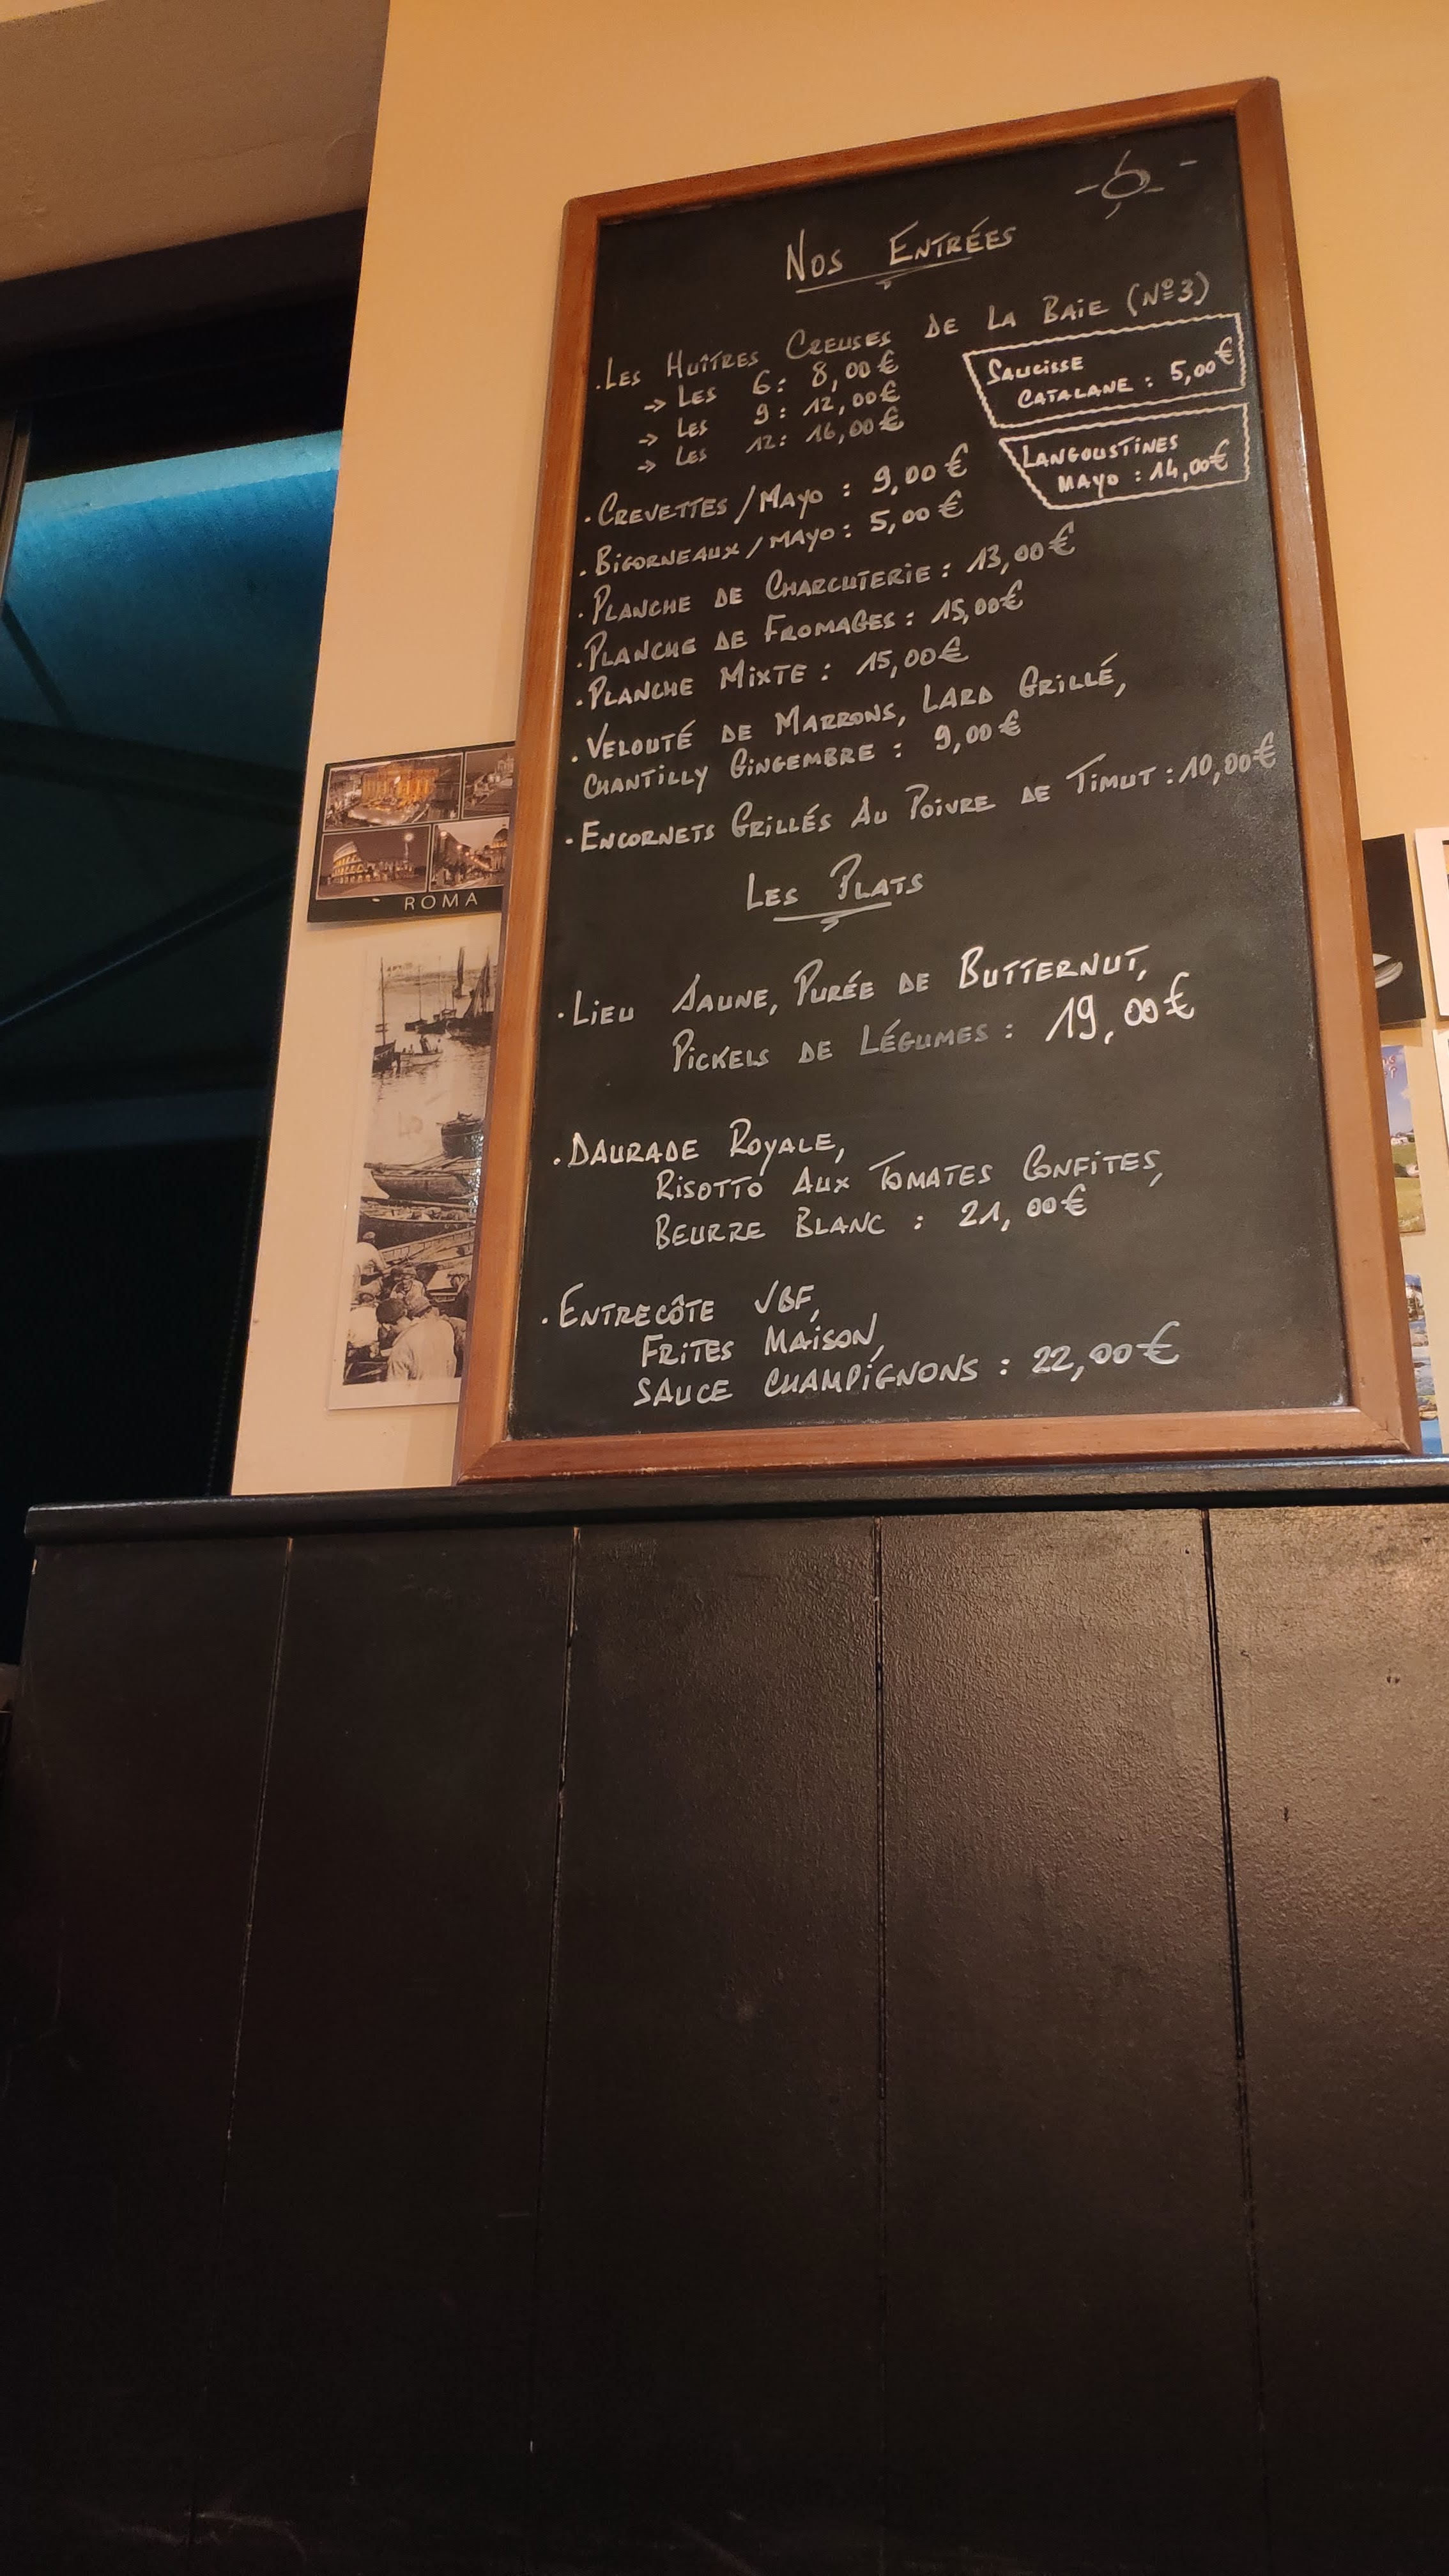 Nos Entrées
. Les Huîtres Creuses de la Baie (Nº3)
→ Les 6 : 8,00€
→ Les 9 : 12,00€
→ Les 12 : 16,00€
Saucisse
Catalane : 5,00€
Langoustines
Mayo : 14,00€
. Crevettes / Mayo : 9,00€
. Bigorneaux / Mayo : 5,00€
. Planche de Charcuterie : 13,00€
. Planche de Fromages : 15,00€
. Planche Mixte : 15,00€
. Velouté de Marrons, Lard Grillé,
Chantilly Gingembre : 9,00€
. Encornets Grillés Au Poivre de Timut : 10,00€
Les Plats
. Lieu Jaune, Purée de Butternut,
Pickels de Légumes : 19,00€
. Daurade Royale,
Risotto Aux Tomates Confites,
Beurre Blanc : 21,00€
. Entrecôte VBF,
Frites Maison,
Sauce Champignons : 22,00€
ROMA